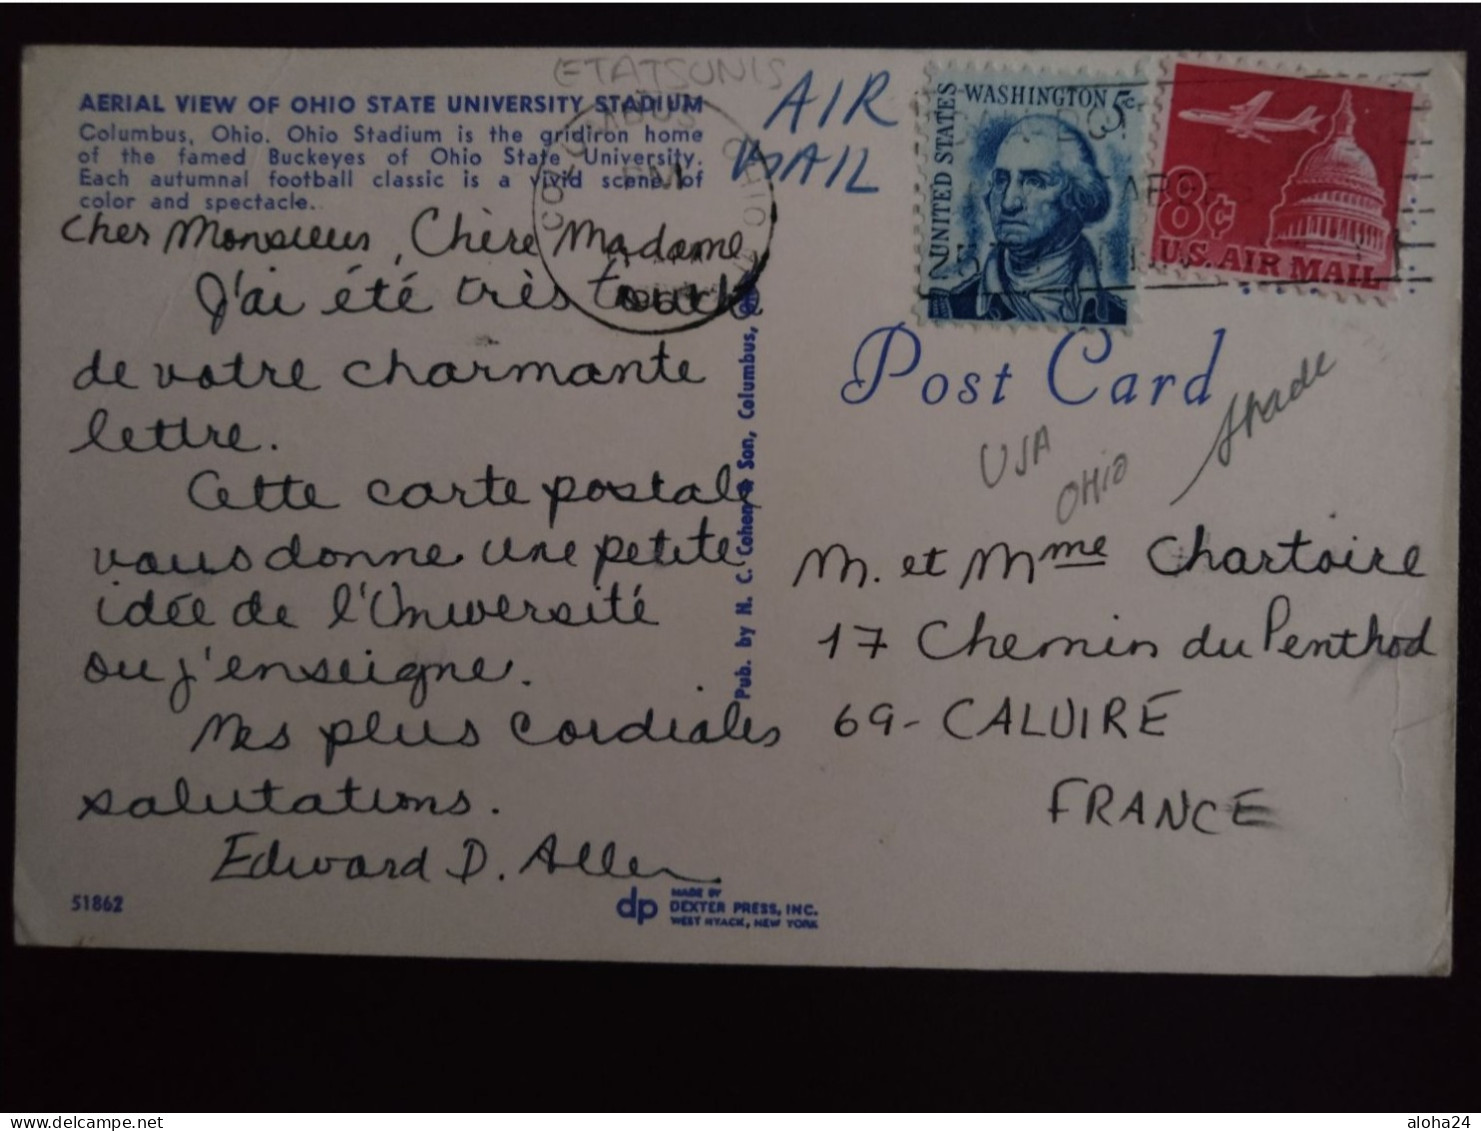 ETATSUNIS
AERIAL VIEW OF OHIO STATE UNIVERSITY STADIUM
Columbus, Ohio. Ohio Stadium is the gridiron home
of the famed Buckeyes of Ohio State University.
Each autumnal football classic is a vivid scene of
color and spectacle.
COLUMBUS OHIO
PM
AIR
MAIL
UNITED STATES
WASHINGTON 5c
8¢
U.S. AIR MAIL
Cher Monsieur, Chère Madame,
J'ai été très touché
de votre charmante
lettre.
Cette carte postale
vous donne une petite
idée de l'Université
ou j'enseigne.
Mes plus cordiales
salutations.
Edward D. Allen
Pub. by H. C. Cohen & Son, Columbus,
Post Card
USA
OHIO
Stade
M. et Mme Chartoire
17 Chemin du Penthod
69- CALUIRE
FRANCE
51862
dp
MADE BY
DEXTER PRESS, INC.
WEST NYACK, NEW YORK
www.delcampe.net
aloha24